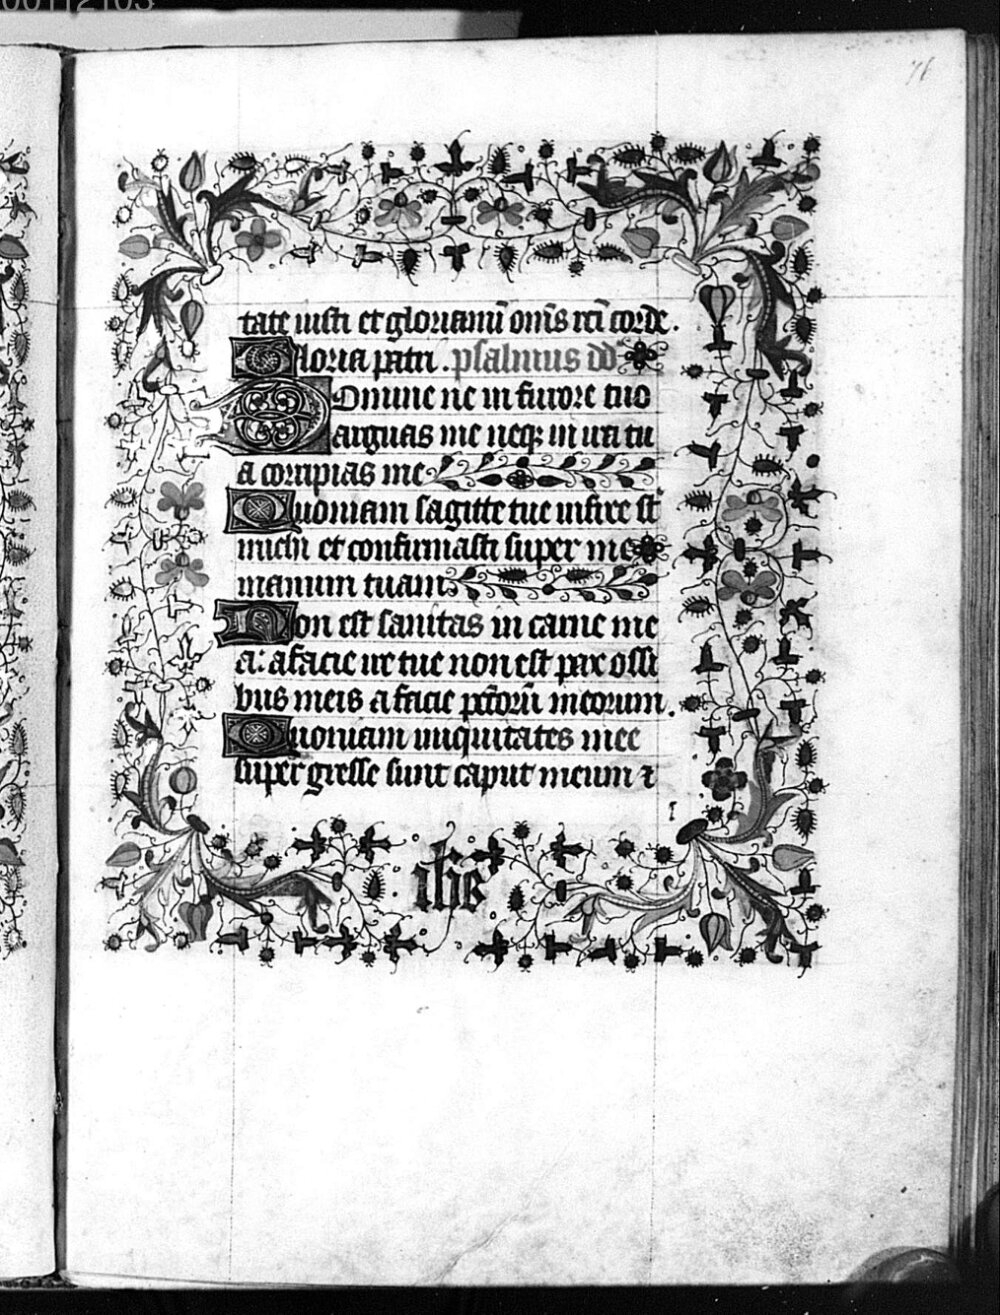 00112103
76
tate iusti et gloriamĩ om̃s rc̃i corde.
Gloria patri. psalmus dd
Domine ne in furore tuo
arguas me neqz in ira tu
a corripias me
Quoniam sagitte tue infixe st̃
michi et confirmasti super me
manum tuam
Non est sanitas in carne me
a: a facie ire tue non est pax ossi
bus meis a facie pc̃torũ meorum.
Quoniam iniquitates mee
super gresse sunt caput meum ⁊
ihs